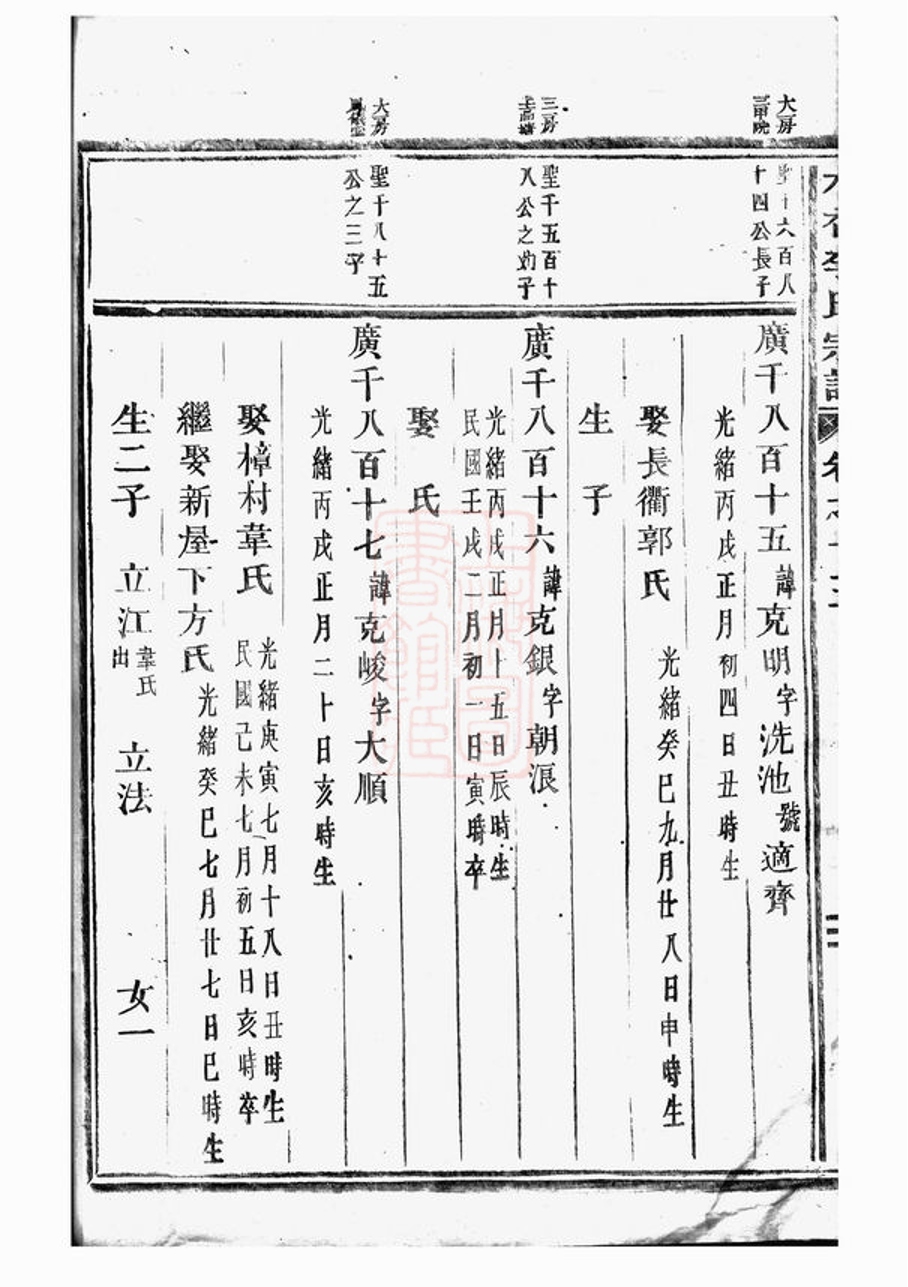 李氏宗譜
大房
聖千六百八
十四公長子
廣千八百十五諱克明字洗池號適齊
光緒丙戌正月初四日丑時生
娶長衢郭氏 光緒癸巳九月廿八日申時生
生 子
三房
聖千五百十
八公之幼子
廣千八百十六諱克銀字朝浪
光緒丙戌正月十五日辰時生
民國壬戌二月初一日寅時卒
娶 氏
大房
聖千八十五
公之三子
廣千八百十七諱克峻字大順
光緒丙戌正月二十日亥時生
娶樟村韋氏 光緒庚寅七月十八日丑時生
民國己未七月初五日亥時卒
繼娶新屋下方氏 光緒癸巳七月廿七日巳時生
生二子 立江 韋氏出 立法 女一